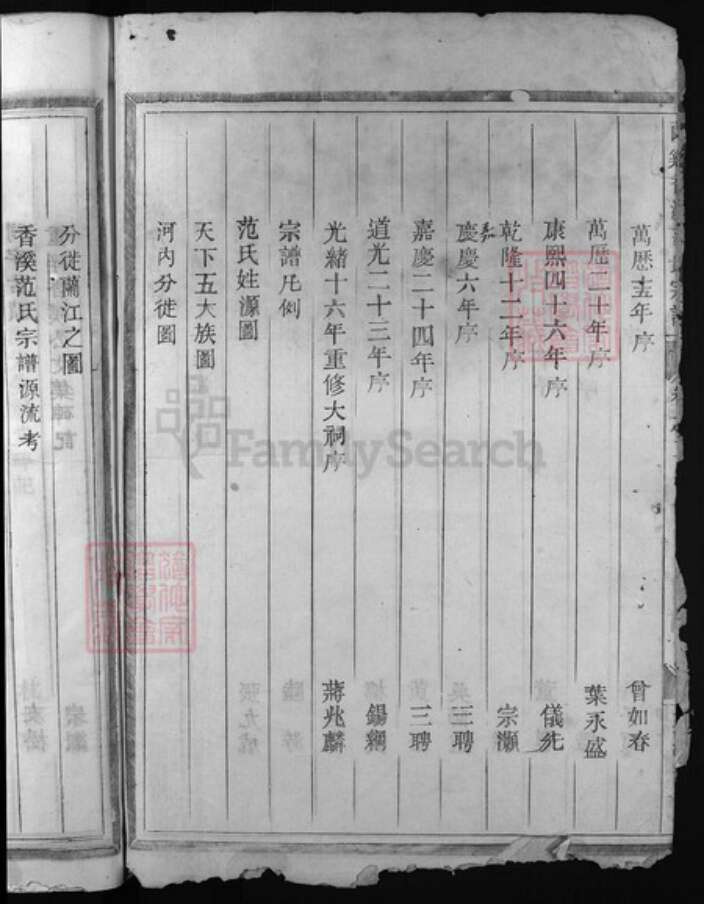 萬歷十五年序 曾如春
萬歷二十年序 葉永盛
康熙四十六年序 儀先
乾隆十二年序 宗灝
嘉慶六年序 三聘
嘉慶二十四年序 三聘
道光二十三年序 錫綱
光緒十六年重修大祠序 蔣兆麟
宗譜凡例
范氏姓源圖
天下五大族圖
河內分徙圖
分徙蘭江之圖
香溪范氏宗譜源流考
FamilySearch